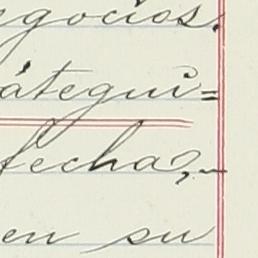 egocios.
átegui=
fecha,—
en su